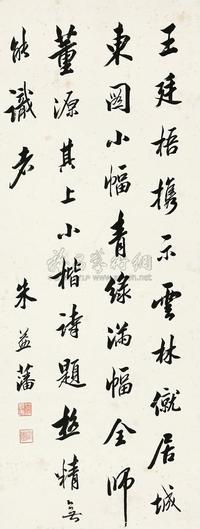 王廷梧携示雲林僦居城
東圖小幅青綠滿幅全師
董源其上小楷詩題極精無
能識者
朱益藩